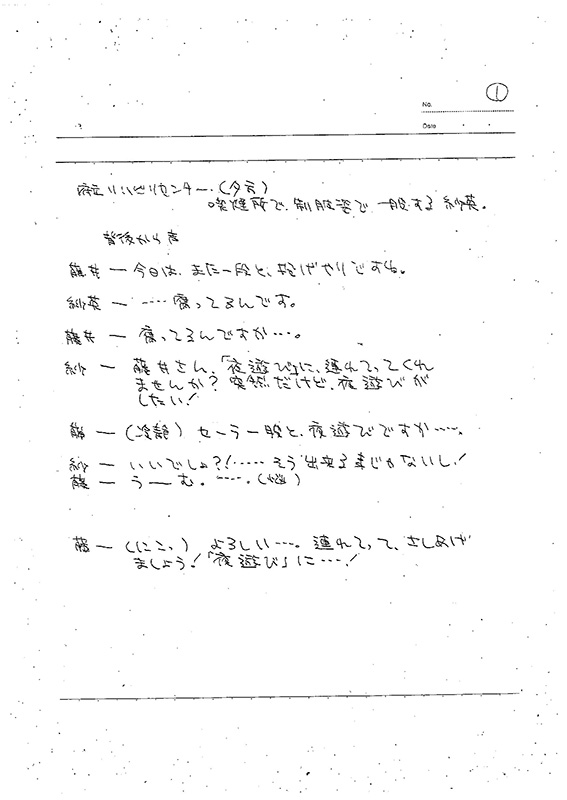 ①
No.
Date
府立リハビリセンター.(夕方)
喫煙所で、制服姿で一服する紗英。
背後から声
藤井 ー 今日は、また一段と、投げやりですね。
紗英 ー ‥‥腐ってるんです。
藤井 ー 腐ってるんですか‥‥。
紗 ー 藤井さん、「夜遊び」に、連れてってくれ
ませんか? 突然だけど、夜遊びが
したい!
藤 ー (冷静) セーラー服と、夜遊びですか‥‥。
紗 ー いいでしょ?!‥‥‥そう出来る事じゃないし!
藤 ー うーむ。‥‥。(悩)
藤 ー (にこっ) よろしい‥‥。連れてって、さしあげ
ましょう!「夜遊び」に‥‥!